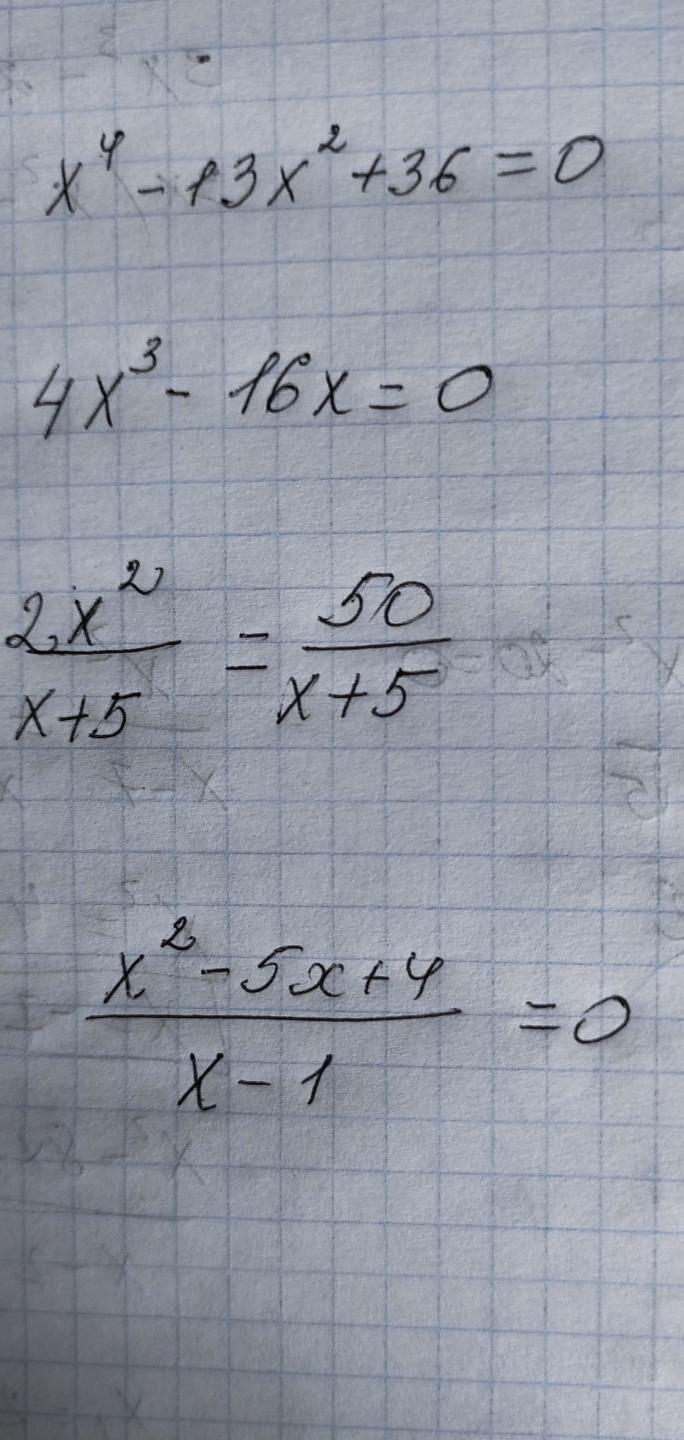 x⁴ - 13x² + 36 = 0
4x³ - 16x = 0
2x²/(x+5) = 50/(x+5)
(x² - 5x + 4)/(x - 1) = 0